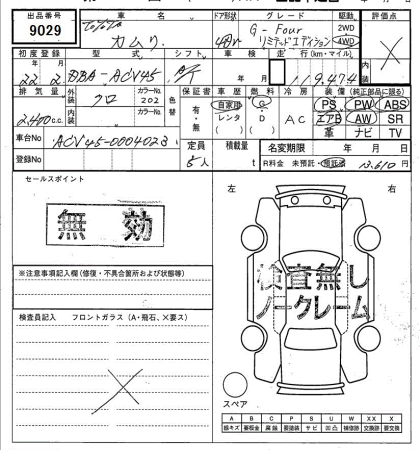 出品番号 車名 ドア形状 グレード 駆動 評価点
9029 トヨタ カムリ 4D G-Four リミテッドエディション 2WD 4WD
初度登録 型式 シフト 車検 走行(km・マイル)
22年 2月 DBA-ACV45 年 月 119,474
排気量 外装色 カラーNo. 内装色 カラーNo. 色替 保証書 車歴 燃料 冷房 装備(純正部品に限る)
2,400c.c. クロ 202 有・無 自家用 レンタ ( ) G D ( ) AC PS PW ABS
エアB AW SR
革 ナビ TV
車台No ACV45-0004023 定員 積載量 名変期限 年 月 日
登録No 5人 t R料金 未預託・預託済 13,610円
セールスポイント
無効
左 右
検査無し
ノークレーム
※注意事項記入欄(修復・不具合箇所および状態等)
検査員記入 フロントガラス(A・飛石、×要ス)
スペア
A B C P S U W XX X
線キズ 要板金 腐蝕 要塗装 サビ 凹凸 補修跡 交換跡 要交換